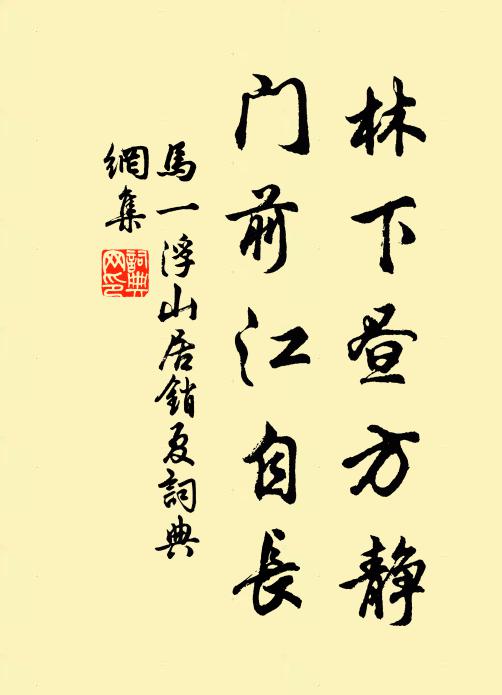 林下昼方静
门前江自長
馬一浮山居銷夏詞典
網集
詞典
网印